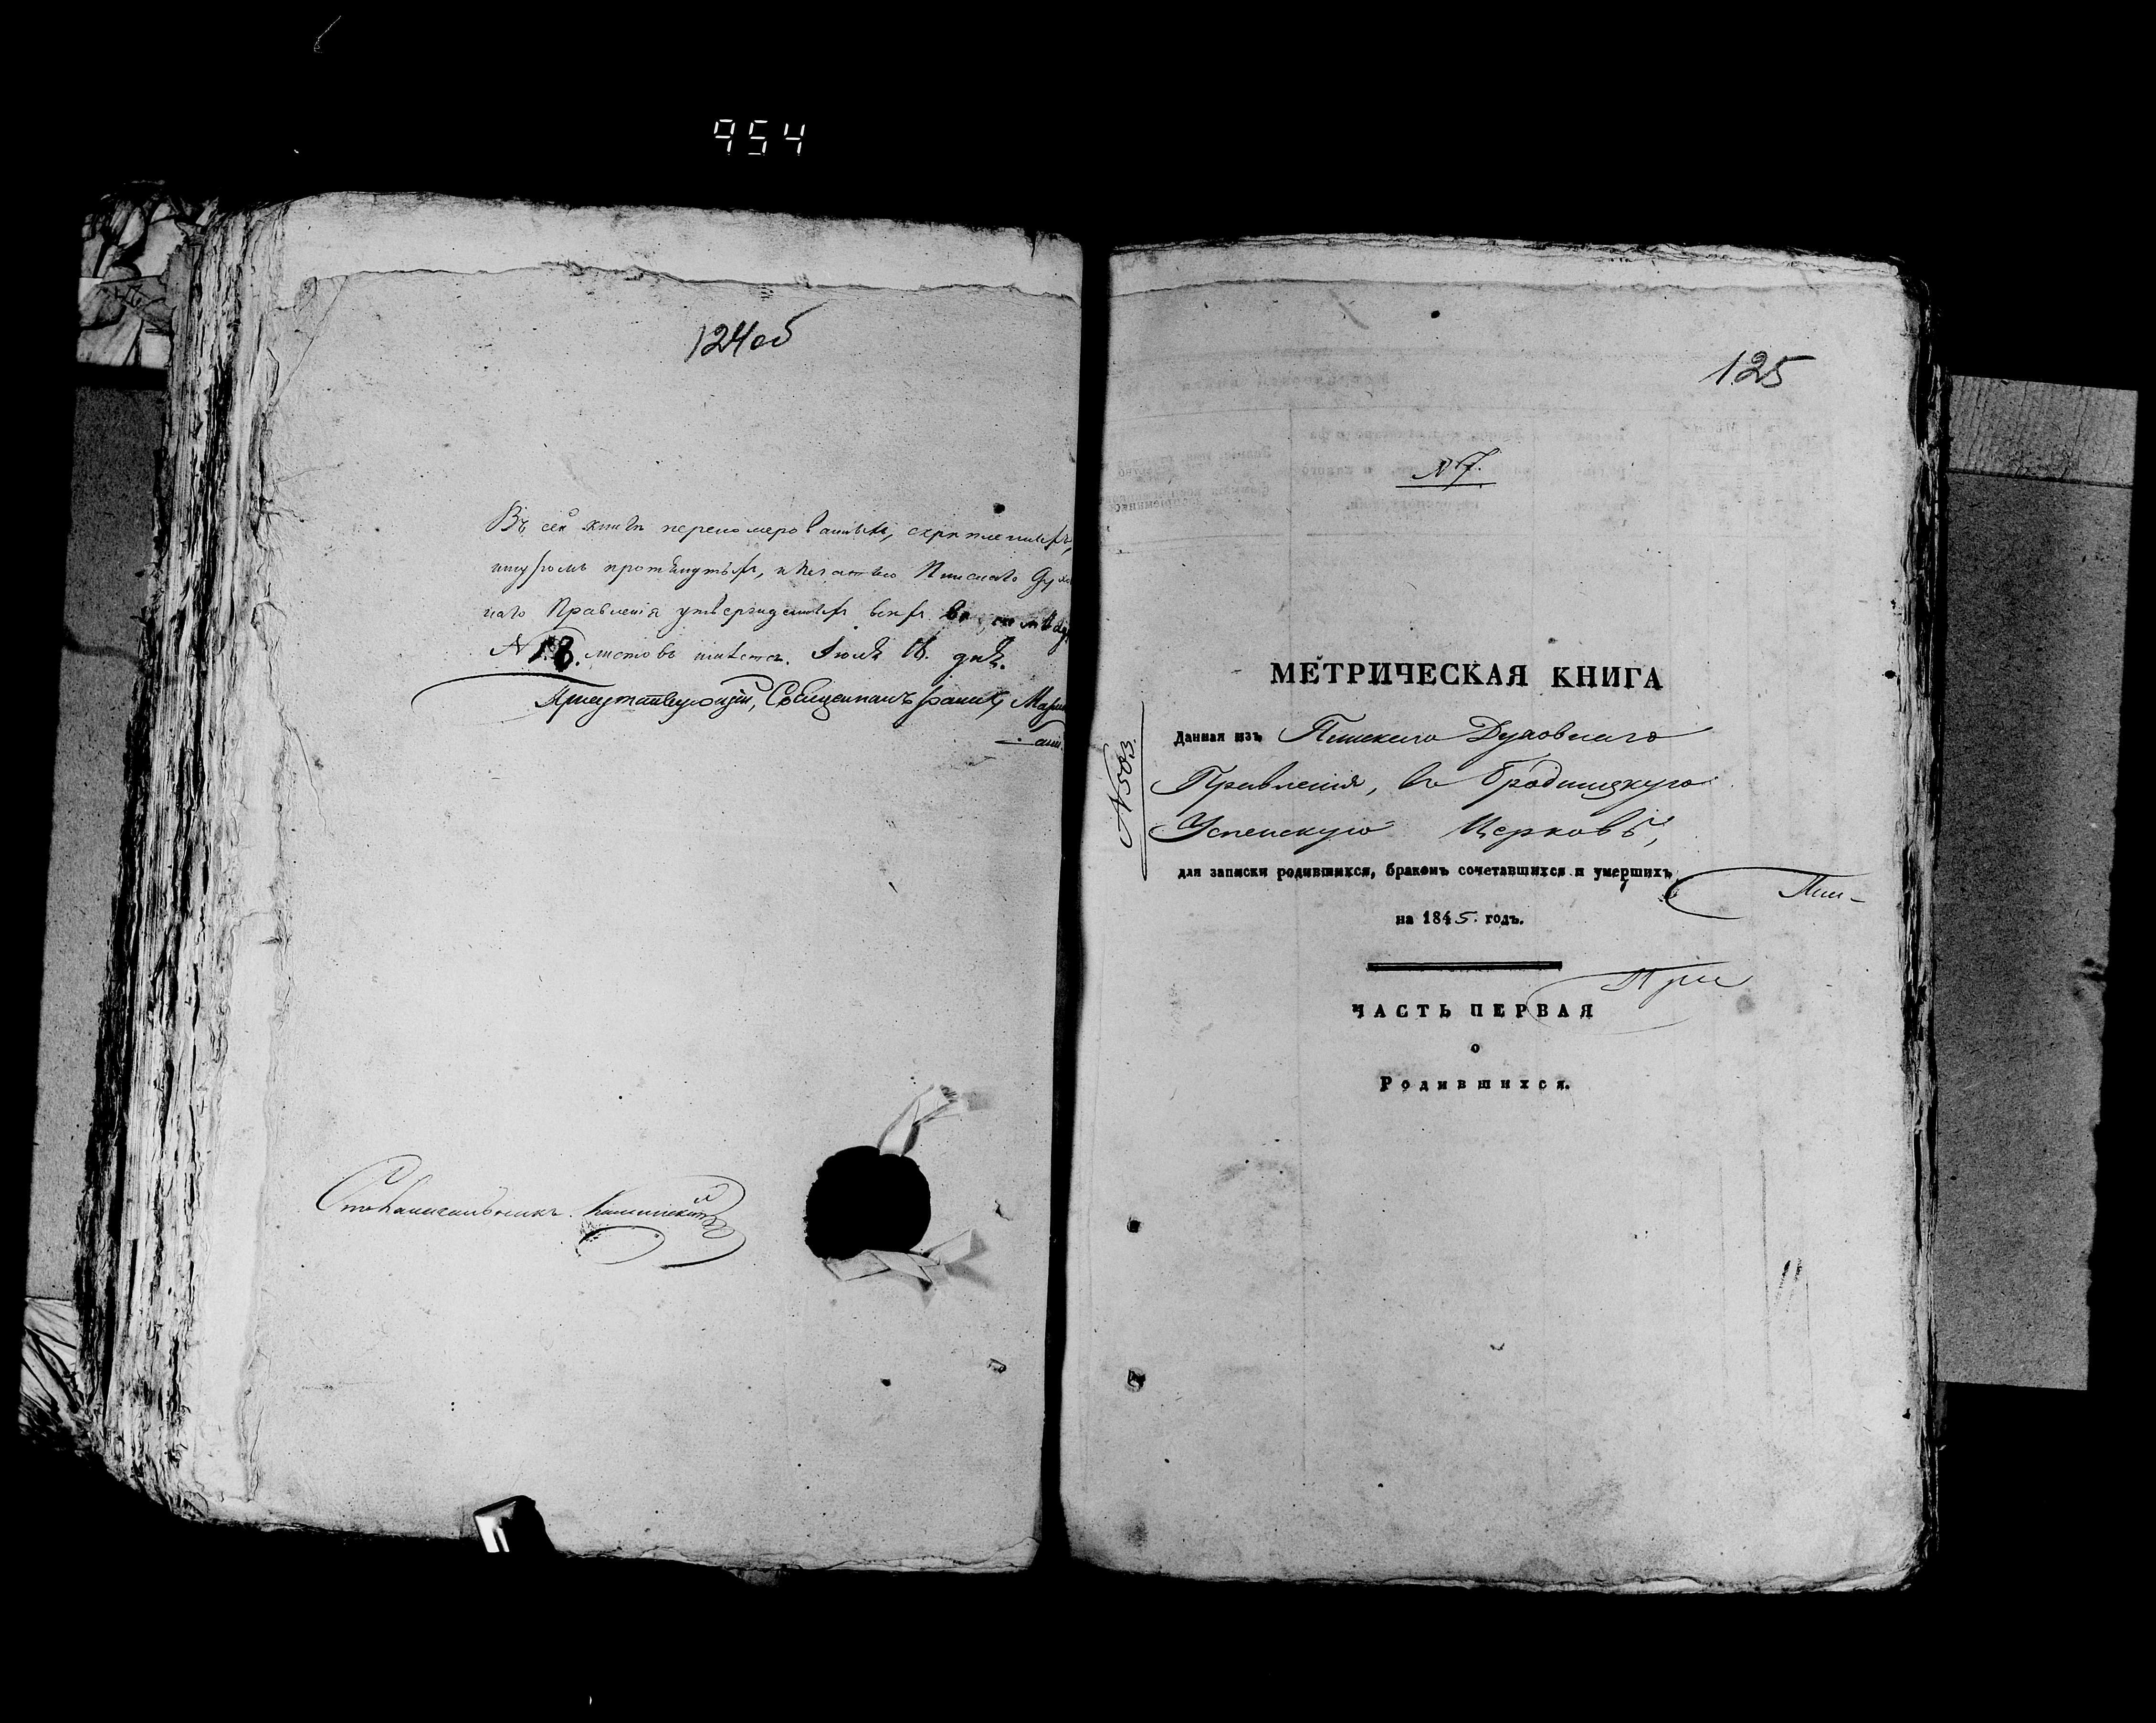 954
124об
Въ сей книгѣ перенумерованныхъ, скрѣпленныхъ,
шнуромъ протянутыхъ, и печатью Пинскаго Духов
наго Правленія утвержденныхъ всѣхъ
N 18. листовъ имѣется. Іюля 18. дня.
Присутствующій, Священникъ
Столоначальникъ
125
N 7.
МЕТРИЧЕСКАЯ КНИГА
Данная изъ Пинскаго Духовнаго
Правленія, въ Бродницкую
Успенскую Церковь,
N 503
для записки родившихся, бракомъ сочетавшихся и умершихъ,
Пин-
на 1845. годъ.
При
ЧАСТЬ ПЕРВАЯ
о
Родившихся.